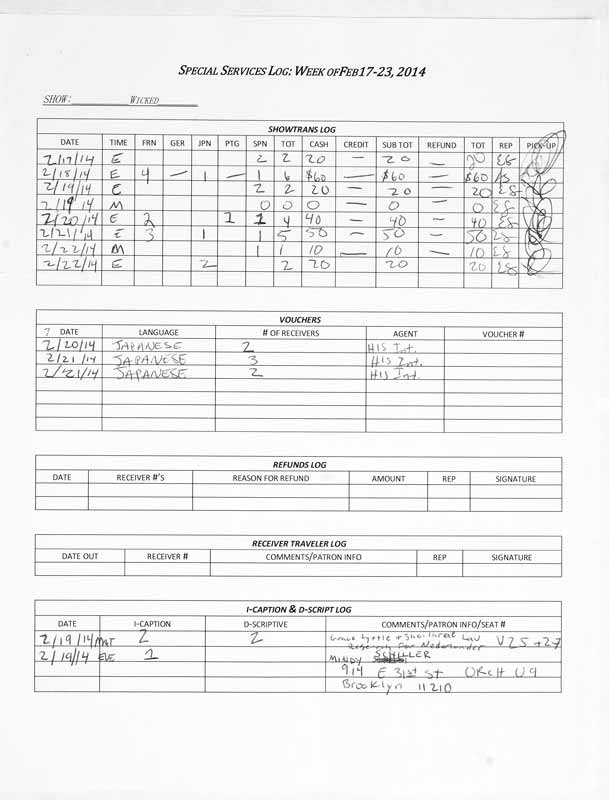 SPECIAL SERVICES LOG: WEEK OF FEB 17-23, 2014
SHOW: WICKED
SHOWTRANS LOG
DATE TIME FRN GER JPN PTG SPN TOT CASH CREDIT SUB TOT REFUND TOT REP PICK-UP
2/17/14 E 2 2 20 — 20 — 20 ES
2/18/14 E 4 — 1 — 1 6 $60 — $60 — $60
2/19/14 E 2 2 20 — 20 — 20 ES
2/19/14 M 0 0 0 — 0 — 0 ES
2/20/14 E 2 1 1 4 40 — 40 — 40 ES
2/21/14 E 3 1 1 5 50 — 50 — 50 ES
2/22/14 M 1 1 10 — 10 — 10 ES
2/22/14 E 2 2 20 20 20 ES
VOUCHERS
7 DATE LANGUAGE # OF RECEIVERS AGENT VOUCHER #
2/20/14 JAPANESE 2 HIS Int.
2/21/14 JAPANESE 3 HIS Int.
2/21/14 JAPANESE 2 HIS Int.
REFUNDS LOG
DATE RECEIVER #'S REASON FOR REFUND AMOUNT REP SIGNATURE
RECEIVER TRAVELER LOG
DATE OUT RECEIVER # COMMENTS/PATRON INFO REP SIGNATURE
I-CAPTION & D-SCRIPT LOG
DATE I-CAPTION D-SCRIPTIVE COMMENTS/PATRON INFO/SEAT #
2/19/14 MAT 2 2 Lyttle + Law V25 + 27
Research For Nederlander
2/19/14 EVE 1 MINDY SCHILLER
914 E 31st St ORCH U9
Brooklyn 11210